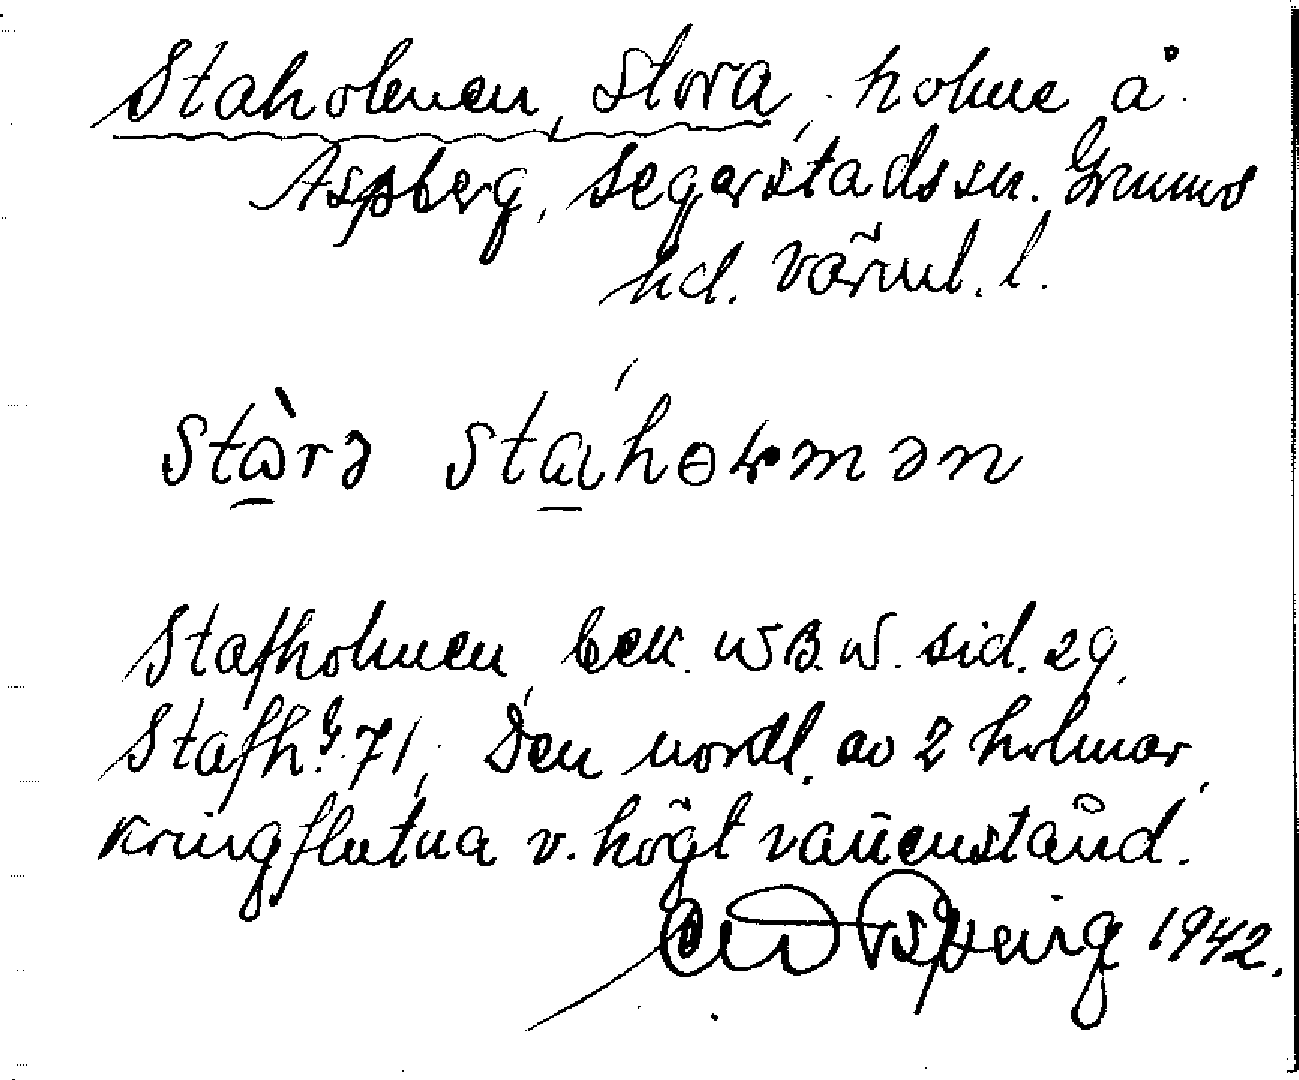 Staholmen, Stora, holme å
Aspberg, Segerstads sn. Grums
hd. Värml. l.
stɷ̀rə stɑ́hɵɽmən
Stafholmen, bek. WBW. sid. 29.
Stafh. 71. Den nordl. av 2 holmar,
kringflutna v. högt vattenstånd.
1942.